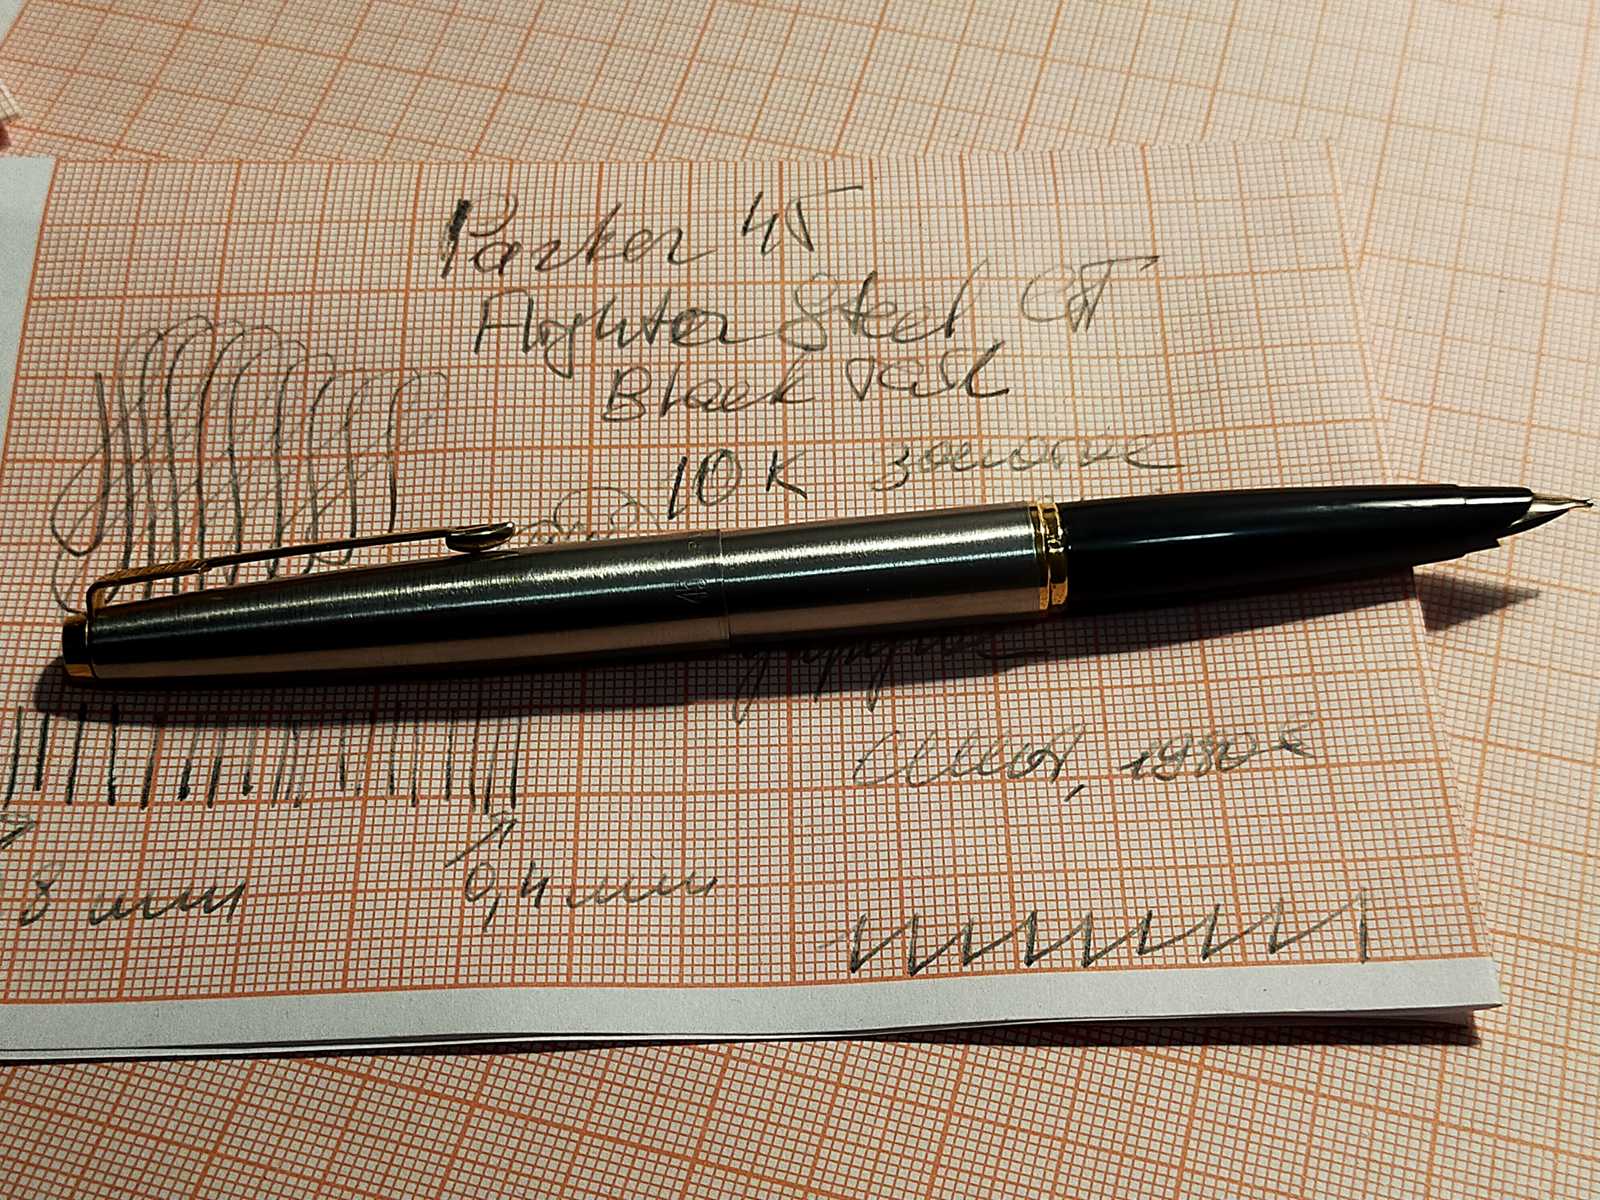 Parker 45
Flighter Steel GT
Black Tassi
10K золотое
упругое
США, 1980е
3 мм
0,4 мм